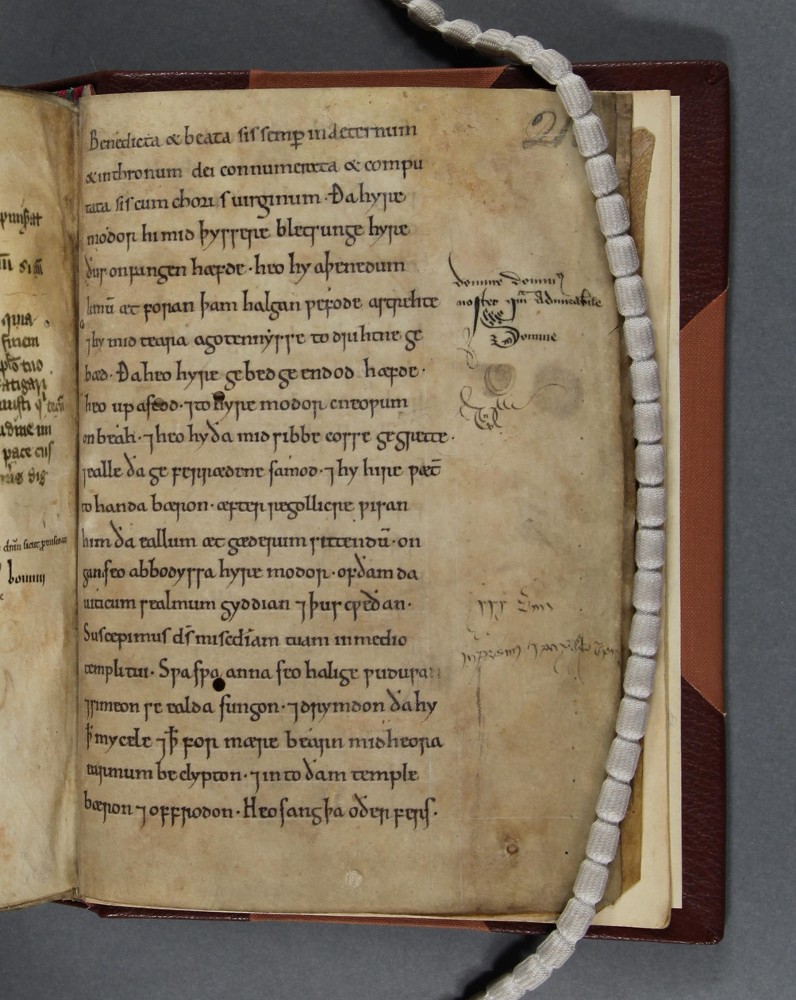 21
Benedicta & beata sis semp̄ in aeternum
& in thronum dei connumerata & compu
tata sis cum choris uirginum. Ða hyre
modor hi mid þyssere bletsunge hyre
ðus onsungen hæfde · heo hy aþenedum
limū æt foran þam halgan wefode astrehte
⁊ hy mid teara agotennysse to drihtne ge
bæd. Ða heo hyre gebed geendod hæfde ·
heo up astod · ⁊ to hyre modor cneowum
onbeah · ⁊ heo hy ða mid sibbe cosse gegrette ·
⁊ ealle ða geferrædene samod · ⁊ hy hire wæt̄
to handa bæron · æfter regollicre wisan
him ða eallum æt gæderum sittendū · on
gan seo abbodyssa hyre modor · of ðam da
uiticum sealmum gyddian ⁊ þus cweðan ·
Suscepimus ds̄ misc̄diam tuam in medio
templi tui · Swa swa anna seo halige wuduwa
⁊ simeon se ealda sungon · ⁊ drymdon ða hy
ꝥ mycele ⁊ ꝥ formære bearn mid heora
earmum beclypton · ⁊ in to ðam temple
bæron ⁊ offrodon · Heo sang þa oðer fers ·
domine
noster admirabile
Domine